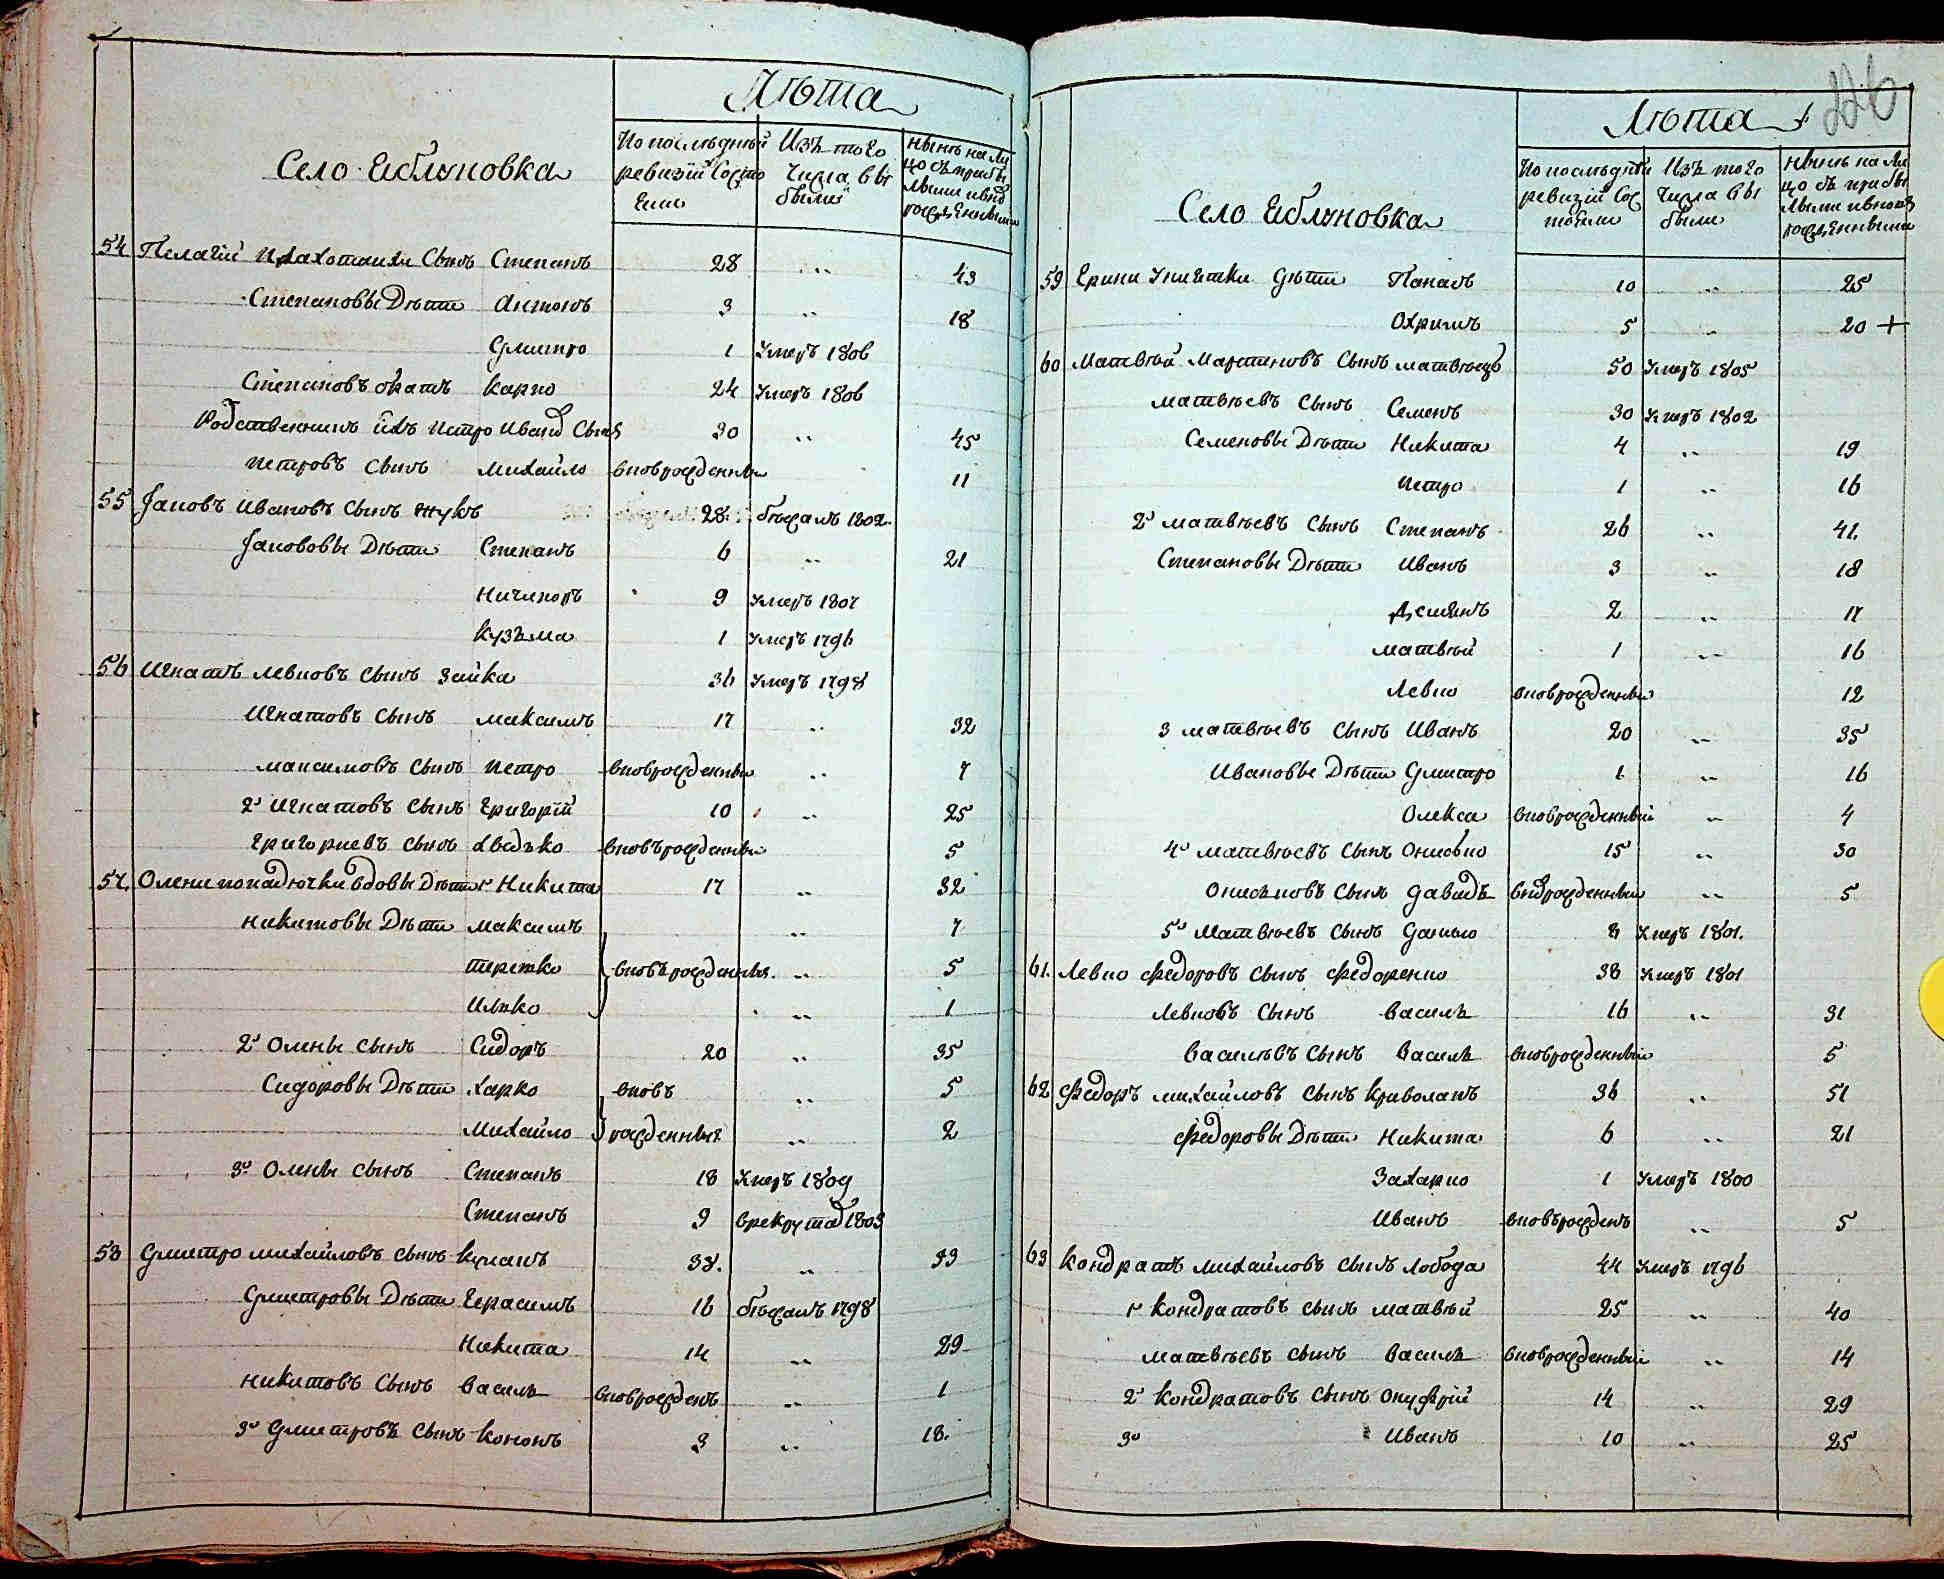 Лѣта
Село Яблуновка
По послѣдней ревизіи состояло
Изъ того числа выбыли
Нынѣ на лицо съ прибылыми и вновь рожденными
54 Пелагіи Сынъ Степанъ 28 „ 43
Степановы Дѣти Антонъ 3 „ 18
Дмитро 1 Умеръ 1806
Степановъ братъ Карпо 24 Умеръ 1806
Родственникъ ихъ Петро Иванов Сынъ 30 „ 45
Петровъ Сынъ Михайло вновьрожденный 11
55 Яковъ Ивановъ Сынъ Жукъ 28 бѣжалъ 1802.
Якововы Дѣти Степанъ 6 „ 21
Ничипоръ 9 Умеръ 1807
Кузьма 1 Умеръ 1796
56 Игнатъ Левковъ Сынъ Заика 36 Умеръ 1798
Игнатовъ Сынъ Максимъ 17 „ 32
Максимовъ Сынъ Петро вновьрожденный „ 7
2й Игнатовъ Сынъ Григорій 10 „ 25
Григориевъ Сынъ Хведько вновърожденный 5
57. Олени попадючки вдовы Дѣти 1й Никита 17 „ 32
Никитовы Дѣти Максимъ „ 7
Терешко вновърожденныя. „ 5
Илько „ 1
2й Олены Сынъ Сидоръ 20 „ 35
Сидоровы Дѣти Харко вновъ „ 5
Михайло рожденныя „ 2
3й Олены Сынъ Степанъ 18 Умеръ 1809
Степанъ 9 в рекрута 1803
58 Дмитро Михайловъ Сынъ 38. „ 53
Дмитровы Дѣти Герасимъ 16 бѣжалъ 1798
Никита 14 „ 29
Никитовъ Сынъ Василь вновьрожденъ „ 1
3й Дмитровъ Сынъ Кононъ 3 „ 18.
226
Лѣта
Село Яблуновка
По послѣдней ревизіи состояли
Изъ того числа выбыли
Нынѣ на лицо съ прибылыми и вновь рожденными
59 Ерини Дѣти Панасъ 10 „ 25
Охримъ 5 „ 20 +
60 Матвѣй Мартиновъ Сынъ 50 Умеръ 1805
Матвѣевъ Сынъ Семенъ 30 Умеръ 1802
Семеновы Дѣти Никита 4 „ 19
Петро 1 „ 16
2й Матвѣевъ Сынъ Степанъ 26 „ 41.
Степановы Дѣти Иванъ 3 „ 18
Демянъ 2 „ 17
Матвѣй 1 „ 16
Левко вновьрожденный 12
3 Матвѣевъ Сынъ Иванъ 20 „ 35
Ивановы Дѣти Дмитро 1 „ 16
Олекса вновьрожденный „ 4
4й Матвѣевъ Сынъ Онисько 15 „ 30
Ониськовъ Сынъ Давидъ вновьрожденный „ 5
5й Матвѣевъ Сынъ Данько 8 Умеръ 1801.
61. Левко Федоровъ Сынъ Федоренко 38 Умеръ 1801
Левковъ Сынъ Василь 16 „ 31
Васильевъ Сынъ Василь вновьрожденный 5
62 Федоръ Михайловъ Сынъ Криволапъ 36 „ 51
Федоровы Дѣти Никита 6 „ 21
Захарко 1 Умеръ 1800
Иванъ вновърожденъ „ 5
63 Кондратъ Михайловъ Сынъ Лобода 44 Умеръ 1796
1й Кондратовъ Сынъ Матвѣй 25 „ 40
Матвѣевъ Сынъ Василь вновьрожденный „ 14
2й Кондратовъ Сынъ Онуфрій 14 „ 29
3й Иванъ 10 „ 25